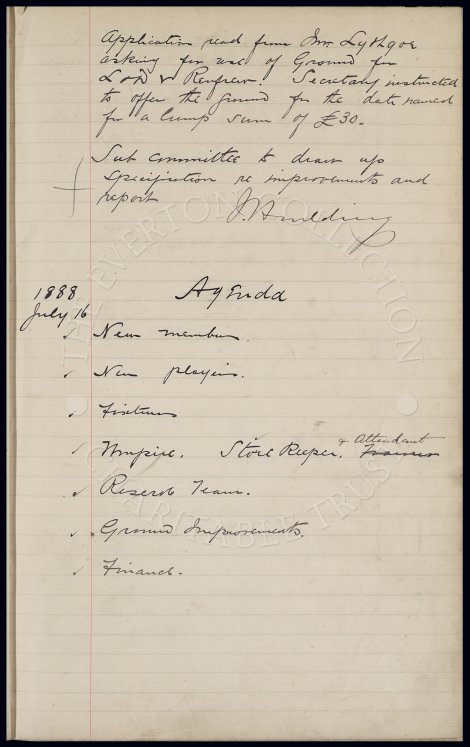 Application read from Mr Lythgoe
asking for use of Ground for
L v Renfrew. Secretary instructed
to offer the ground for the date named
for a lump sum of £30.
Sub committee to draw up
specification re improvements and
report
J. Houlding
1888 Agenda
July 16
New members
New players.
Fixtures
Umpire. Store Keeper. & Attendant Trainer
Reserve Team.
Ground Improvements.
Finance.
THE EVERTON COLLECTION
CHARITABLE TRUST